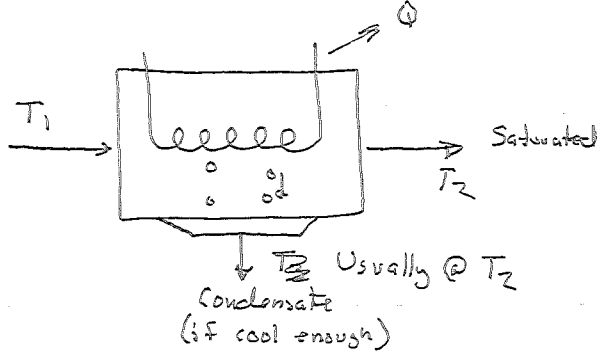 Q
T1
Saturated
T2
Usually @ T2
Condensate
(if cool enough)